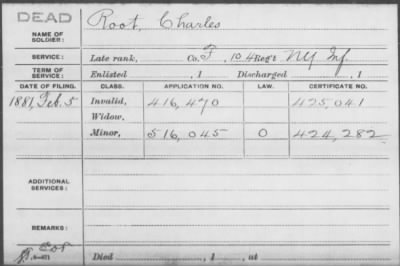 DEAD
NAME OF SOLDIER: Root, Charles
SERVICE: Late rank, Co. F, 104 Reg't NY Inf.
TERM OF SERVICE: Enlisted , 1 Discharged , 1
DATE OF FILING. CLASS. APPLICATION NO. LAW. CERTIFICATE NO.
1881, Feb. 5 Invalid, 416,470 425,041
Widow,
Minor, 516,045 O 424,282
ADDITIONAL SERVICES:
REMARKS:
Died , 1 , at